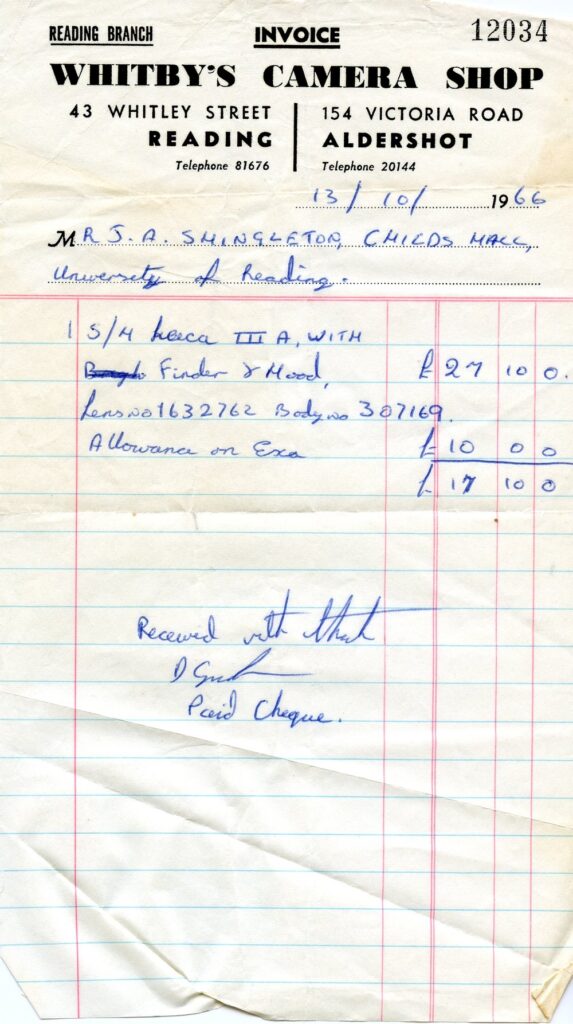 READING BRANCH INVOICE 12034
WHITBY'S CAMERA SHOP
43 WHITLEY STREET 154 VICTORIA ROAD
READING ALDERSHOT
Telephone 81676 Telephone 20144
13/10/ 1966
MR J. A. SHINGLETON, CHILDS HALL,
University of Reading.
1 S/H Leica III A, WITH
Finder & Hood, £ 27 10 0.
Lens no 1632762 Body no 307169.
Allowance on Exa £ 10 0 0
£ 17 10 0
Received with thanks
D
Paid Cheque.